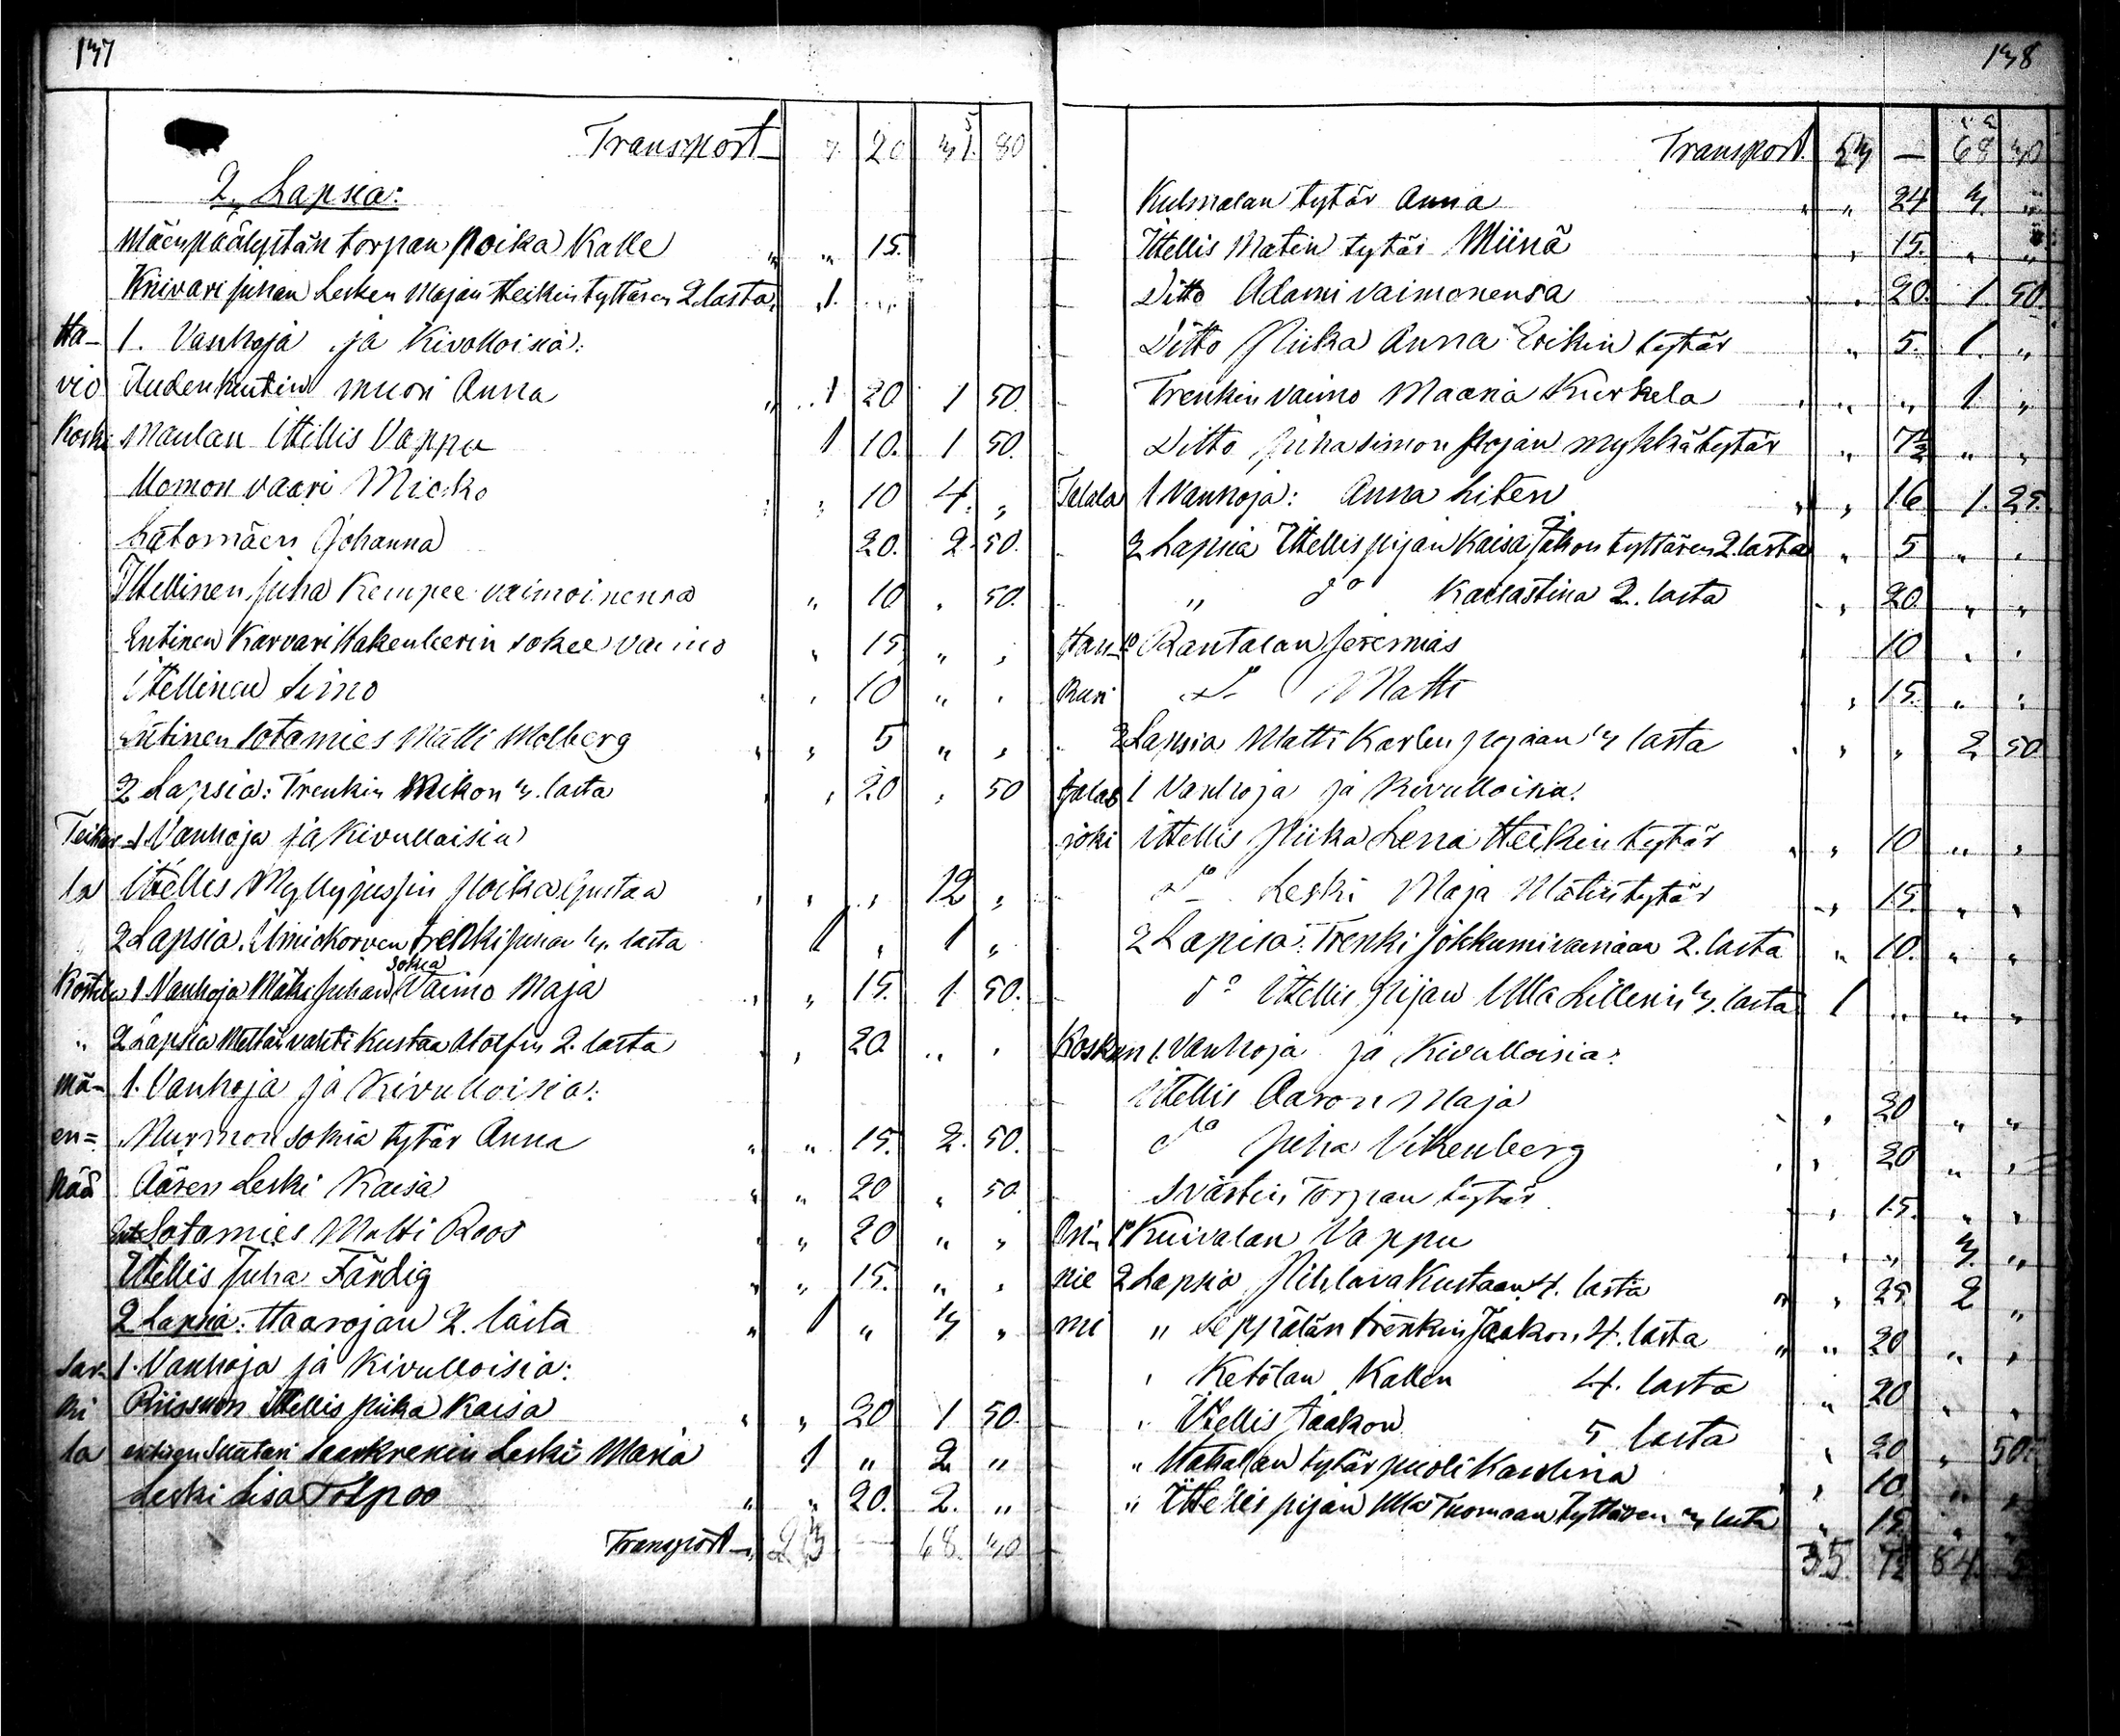 137
Transport 7. 20 31. 80
2. Lapsia:
Mäenpäälystän torpan poika Kalle " " 15.
Knivari juhan Lesken Majan Heikin tyttären 2 lasta " 1. "
Ha- 1. Vanhoja ja Kivolloisia:
vio Uudenkentin muori Anna " 1 20 1 50.
Koski Maulan Ittellis Vappu 1 10. 1 50.
Momon vaari Micko " " 10 4. "
Latomäen Johanna 20. 2 50.
Ittellinen Juha Kempee vaimoinensa " 10 " 50.
Entinen Karvari Hakenbeerin sokee vaimo " 15 " "
Ittellinen Simo " " 10 " "
Entinen Sotamies Matti Molberg " " 5 " "
2 Lapsia: Trenkin Mikon 3. lasta " " 20 " 50
Teikar= 1. Vanhoja ja Kivulloisia
la Ittellis Myllyjussin poika Gustaa " " " 12 "
2 Lapsia. Uminkorven trenki Juhan 3. lasta 1 " 1 "
Köstila 1. Vanhoja Mäki Juhan sokia Vaimo Maja " " 15. 1 50.
" 2 Lapsia Mettän vahti Kustaa Adolfin 2. lasta " " 20. " "
Mä- 1. Vanhoja ja Kivulloisia:
en= Murmon sokia tytär Anna " " 15. 2. 50.
pää Aären Leski Kaisa " " 20 " 50
Ent. Sotamies Matti Roos " " 20 " "
Ittellis Juha Färdig " " 15. " "
2 Lapsia: Haarojan 2. lasta " 1 " 3 "
Sar- 1. Vanhoja ja Kivulloisia:
ki Riissuon ittellis piika Kaisa " " 20 1 50.
la entisen Suutari Leski Maria 1 " 2 "
Leski Lisa Tolpoo " " 20. 2. "
Transport 23 — 68. 30
138
Transport. 23 — 68 30
Kulmalan tytär Anna " " 24 3. "
Ittellis Matin tytär Miinä " 15. " "
Ditto Adami vaimonensa " 20. 1. 50
Ditto Piika Anna Erikin tytär " 5. 1. "
Trenkin vaimo Maaria Kurkela " " " 1 "
Ditto Juha Simon pojan mykkä tytär " 7½ " "
Talala 1 Vanhoja: Anna Liten " " 16 1. 25.
2 Lapsia Ittellis pijan Kaisa Jakon tyttären 2. lasta " 5 " "
" do Karlastina 2. lasta " " 20 " "
Han- 1o Rantalan Jeremias " 10 " "
kuri do Matti " 15. " "
2 Lapsia Matti Karlen pojaan 3 lasta " " " 2 50
Jalas 1 Vanhoja ja Kivulloisia:
joki Ittellis Piika Lena Heikin tytär " " 10 " "
do Leski Maja Matin tytär " 15. " "
2 Lapsia: Trenki 2. lasta " 10. " "
do Ittellis pijan Ulla Lillenin 3. lasta 1 " " "
Kosken 1. Vanhoja ja Kivulloisia:
Ittellis Aaron Maja " " 20 " "
do Juha Vikenberg " " 20 " "
Svärtin Torpan tytär " 15. " "
Ori- 1o Kuivalan Vappu " " 3. "
nie 2 Lapsia Pihlava Kustaan 4. lasta " " 25. 2 "
mi " Seppälän trenkin Jaakon 4. lasta " " 20 " "
" Ketolan Kallen 4. lasta " 20 " "
" Ittellis Jaakon 5 lasta " 20 " 50.
" tytär puoli Karolina " " 10 " "
" Ittellis pijan Ulla Tuomaan tyttären 3 lasta " 15. " "
35. 7½ 84. 5